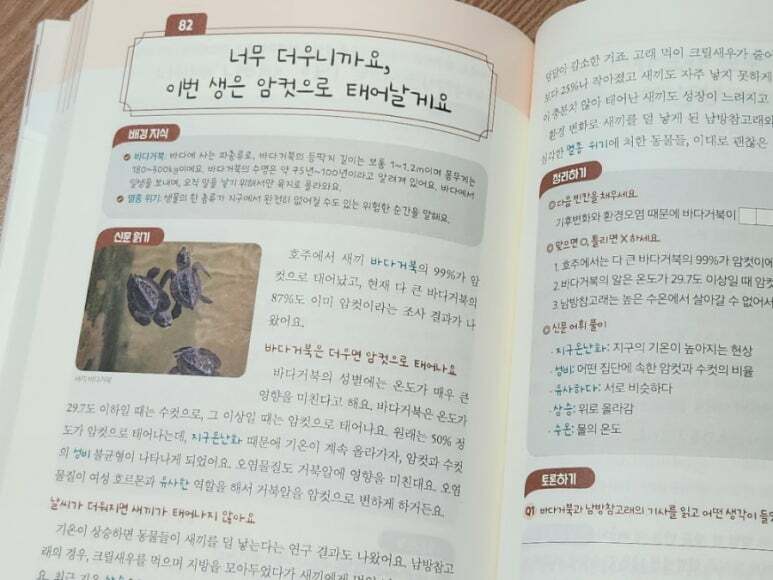 82
너무 더우니까요,
이번 생은 암컷으로 태어날게요
배경 지식
바다거북: 바다에 사는 파충류로, 바다거북의 등딱지 길이는 보통 1~1.2m이며 몸무게는
180~300kg이에요. 바다거북의 수명은 약 75년~100년이라고 알려져 있어요. 바다에서
일생을 보내며, 오직 알을 낳기 위해서만 육지로 올라와요.
멸종 위기: 생물의 한 종류가 지구에서 완전히 없어질 수도 있는 위험한 순간을 말해요.
신문 읽기
새끼 바다거북
호주에서 새끼 바다거북의 99%가 암
컷으로 태어났고, 현재 다 큰 바다거북의
87%도 이미 암컷이라는 조사 결과가 나
왔어요.
바다거북은 더우면 암컷으로 태어나요
바다거북의 성별에는 온도가 매우 큰
영향을 미친다고 해요. 바다거북은 온도가
29.7도 이하일 때는 수컷으로, 그 이상일 때는 암컷으로 태어나요. 원래는 50% 정
도가 암컷으로 태어나는데, 지구온난화 때문에 기온이 계속 올라가자, 암컷과 수컷
의 성비 불균형이 나타나게 되었어요. 오염물질도 거북알에 영향을 미친대요. 오염
물질이 여성 호르몬과 유사한 역할을 해서 거북알을 암컷으로 변하게 하거든요.
날씨가 더워지면 새끼가 태어나지 않아요
기온이 상승하면 동물들이 새끼를 덜 낳는다는 연구 결과도 나왔어요. 남방참고
래의 경우, 크릴새우를 먹으며 지방을 모아두었다가 새끼에게
요. 최근 기온
감소한 거죠. 고래 먹이 크릴새우가 줄어
보다 25%나 작아졌고 새끼도 자주 낳지 못하게
이 충분치 않아 태어난 새끼도 성장이 느려지고
환경 변화로 새끼를 덜 낳게 된 남방참고래와
심각한 멸종 위기에 처한 동물들, 이대로 괜찮은
정리하기
다음 빈칸을 채우세요.
기후변화와 환경오염 때문에 바다거북이
맞으면 O, 틀리면 X 하세요.
1. 호주에서는 다 큰 바다거북의 99%가 암컷이에
2. 바다거북의 알은 온도가 29.7도 이상일 때 암컷
3. 남방참고래는 높은 수온에서 살아갈 수 없어서
신문 어휘 풀이
·지구온난화: 지구의 기온이 높아지는 현상
·성비: 어떤 집단에 속한 암컷과 수컷의 비율
·유사하다: 서로 비슷하다
·상승: 위로 올라감
·수온: 물의 온도
토론하기
Q1 바다거북과 남방참고래의 기사를 읽고 어떤 생각이